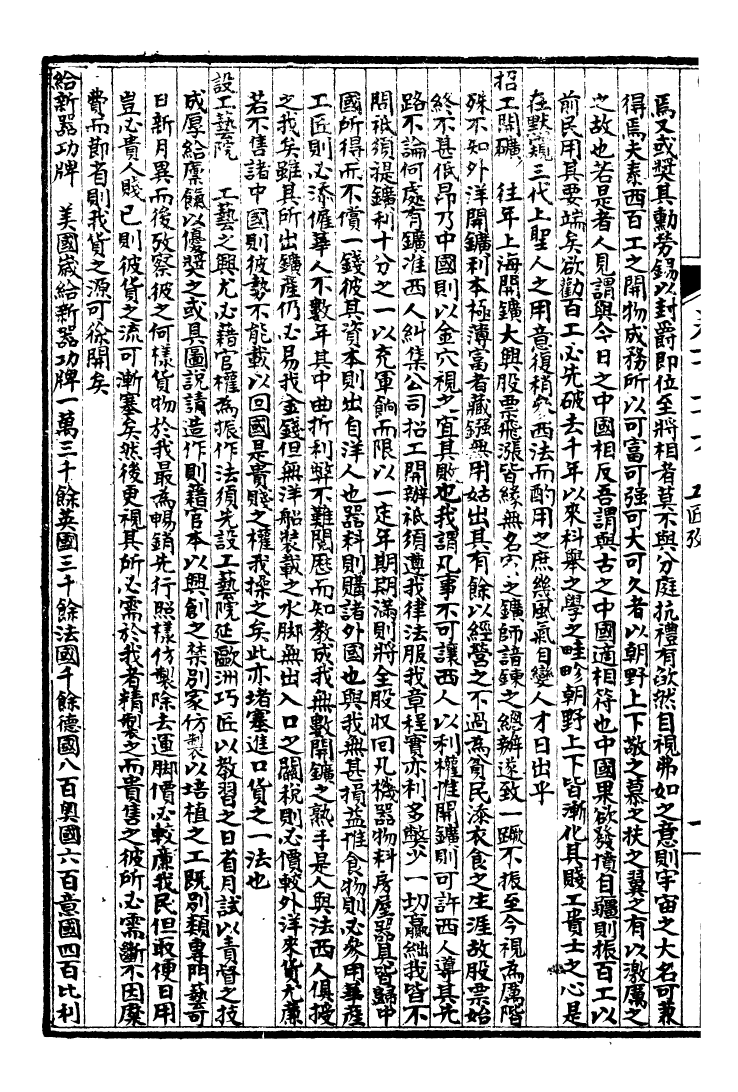 焉又或獎其勳勞錫以封爵即位至將相者莫不與分庭抗禮有欿然自視弗如之意則宇宙之大名可兼
得焉夫泰西百工之開物成務所以可富可强可大可久者以朝野上下敬之慕之扶之翼之有以激厲之
之故也若是者人見謂與今日之中國相反吾謂與古之中國適相符也中國果欲發憤自疆則振百工以
前民用其要端矣欲勸百工必先破去千年以來科舉之學之畦畛朝野上下皆漸化其賤工貴士之心是
在默窺三代上聖人之用意復稍參西法而酌用之庶幾風氣自變人才日出乎
招工開礦　往年上海開鑛大興股票飛漲皆緣無名穴之鑛師諳鍊之總辦遂致一蹶不振至今視為厲階
殊不知外洋開鑛利本極薄富者藏鏹無用姑出其有餘以經營之不過為貧民添衣食之生涯故股票始
終不甚低昂乃中國則以金穴視之宜其敗也我謂凡事不可讓西人以利權惟開鑛則可許西人導其先
路不論何處有鑛准西人糾集公司招工開辦祇須遵我律法服我章程實亦利多弊少一切贏絀我皆不
問祇須提鑛利十分之一以充軍餉而限以一定年期期滿則將全股收回凡機器物料房屋器具皆歸中
國所得而不償一錢彼其資本則出自洋人也器料則購諸外國也與我無甚損益惟食物則必參用華產
工匠則必添僱華人不數年其中曲折利弊不難閱歷而知教成我無數開鑛之熟手是人與法西人俱授
之我矣雖其所出鑛產仍必易我金錢但無洋船裝載之水脚無出入口之關稅則必價較外洋來貨尤廉
若不售諸中國則彼勢不能載以回國是貴賤之權我操之矣此亦堵塞進口貨之一法也
設工藝院　工藝之興尤必藉官權為振作法須先設工藝院延歐洲巧匠以教習之日省月試以責督之技
成厚給廩餼以優獎之或具圖說請造作則藉官本以興創之禁別家仿製以培植之工既別類專門藝可
日新月異而後攷察彼之何樣貨物於我最為暢銷先行照樣仿製除去運脚價必較廉我民但取便日用
豈必貴人賤己則彼貨之流可漸塞矣然後更視其所必需於我者精製之而貴售之彼所必需斷不因糜
費而節省則我貨之源可徐開矣
給新器功牌　美國歲給新器功牌一萬三千餘英國三千餘法國千餘德國八百奧國六百意國四百比利